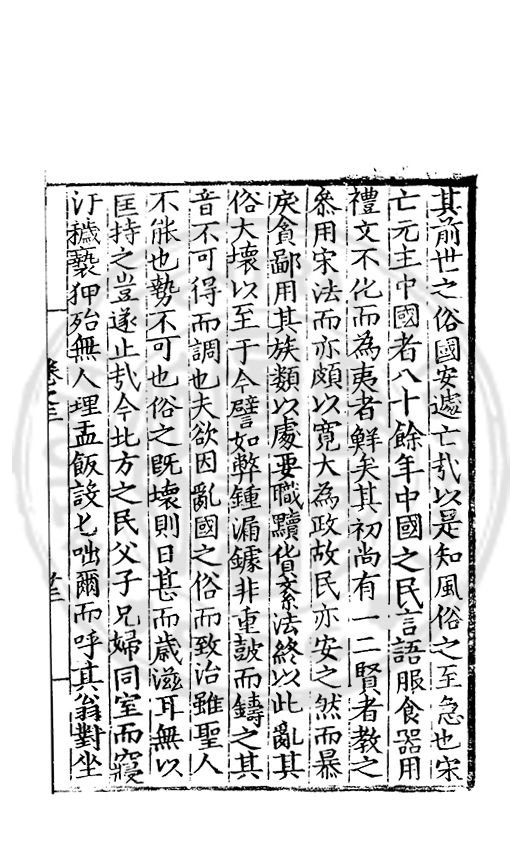 其前世之俗國安遽亡㢤以是知風俗之至急也宋
亡元主中國者八十餘年中國之民言語服食器用
禮文不化而為夷者鮮矣其初尚有一二賢者教之
叅用宋法而亦頗以寛大為政故民亦安之然而暴
戾貪鄙用其族類以處要職黷貨紊法終以此亂其
俗大壞以至于今譬如弊鍾漏鐻非重皷而鑄之其
音不可得而調也夫欲因亂國之俗而致治雖聖人
不能也勢不可也俗之旣壞則日甚而歳滋耳無以
匡持之豈遂止㢤今北方之民父子兄婦同室而寢
汙穢䙝狎殆無人理盂飯設匕咄爾而呼其翁對坐
卷之三